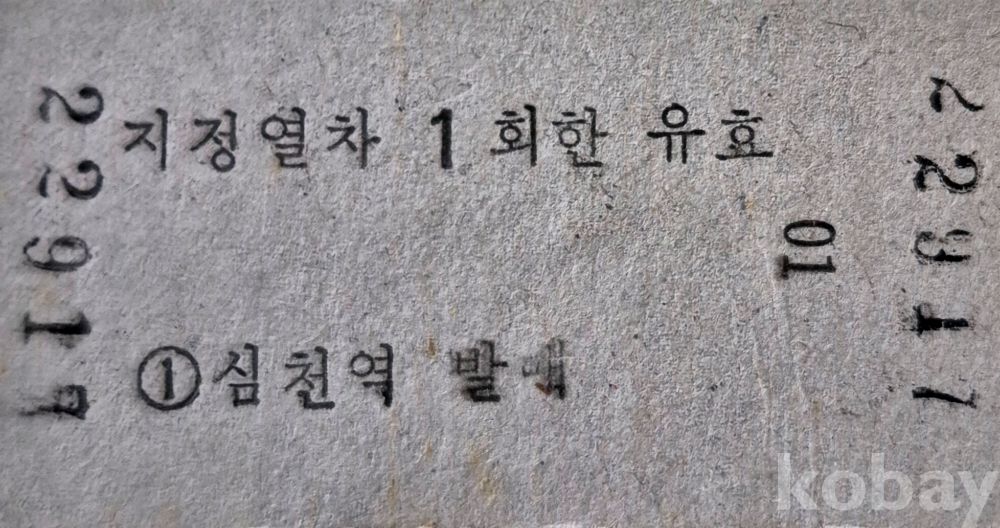 지정열차 1회한 유효
01
①심천역 발매
22917
22917
kobay